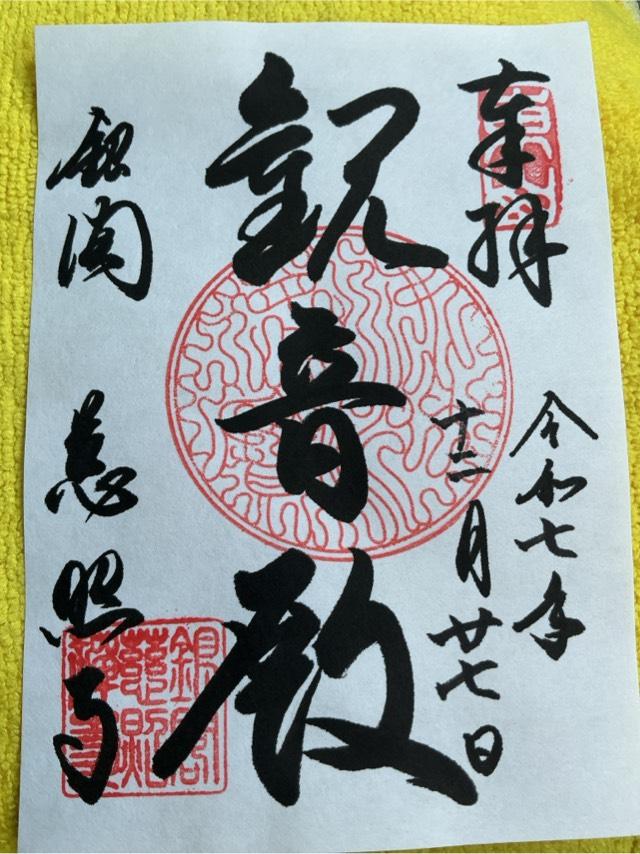 奉拝
令和七年
十二月廿七日
観音殿
銀閣 慈照寺